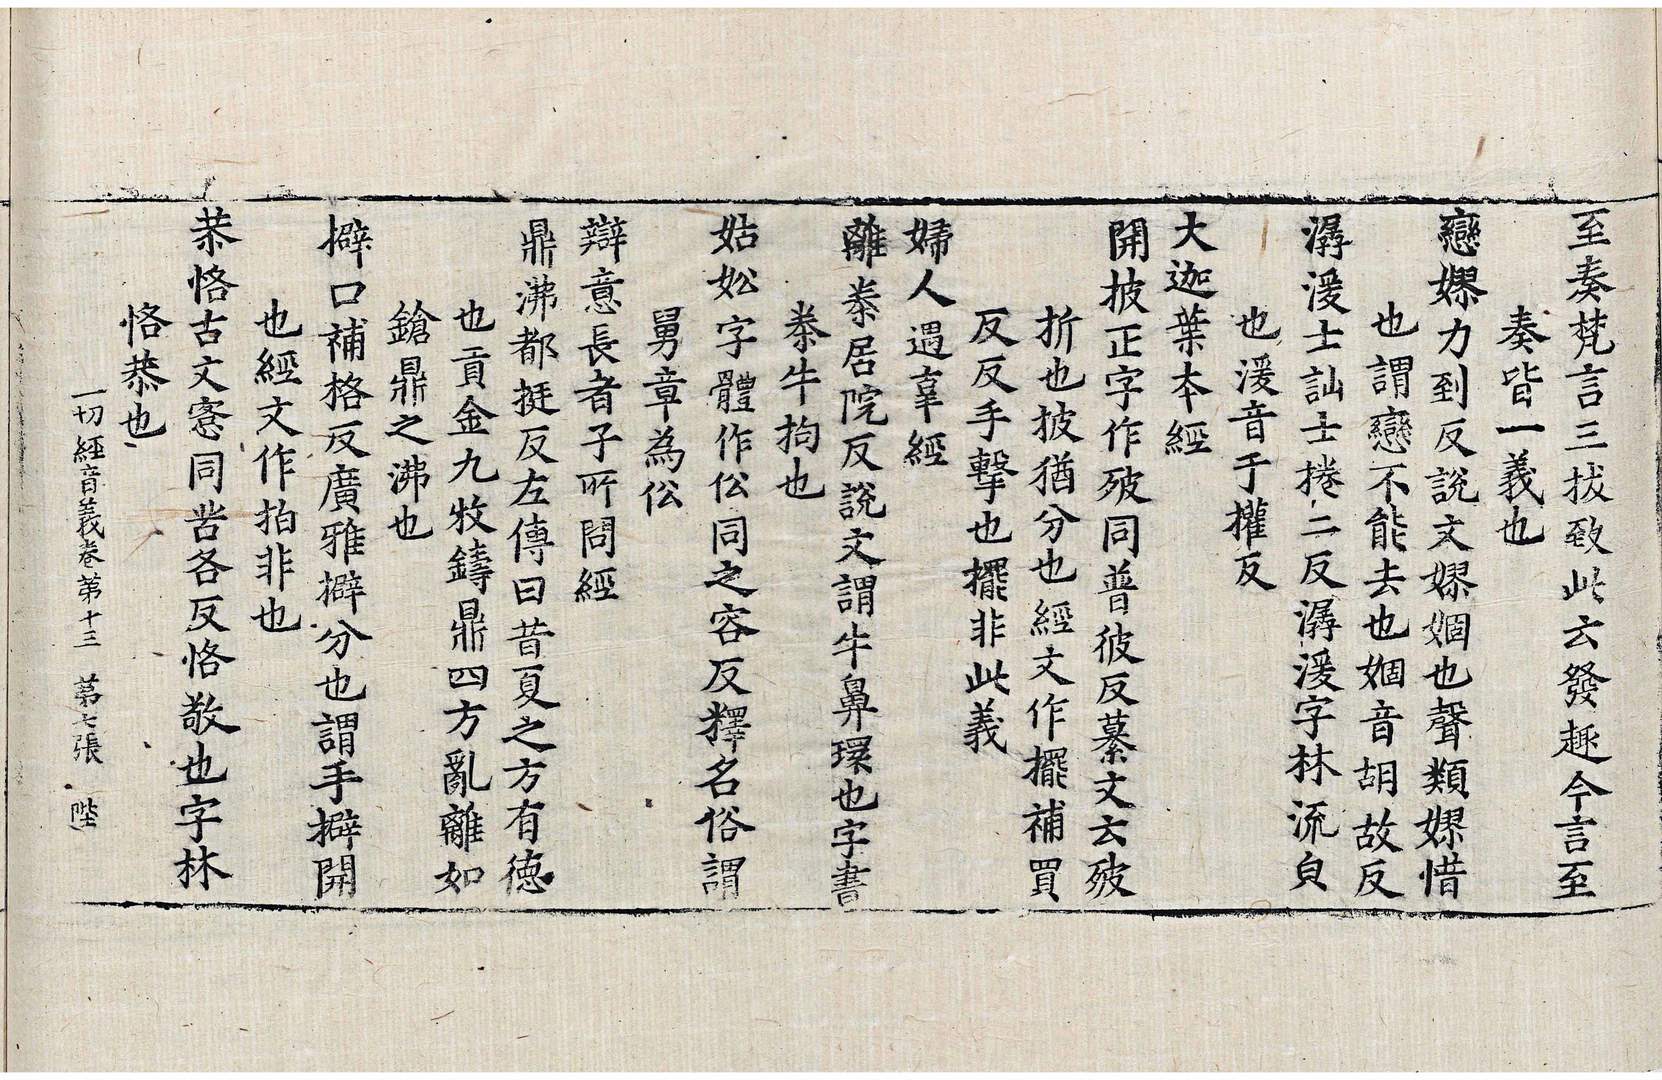 至奏梵言三拔致此云發趣今言至
奏皆一義也
戀嫪力到反說文嫪婟也聲類嫪惜
也謂戀不能去也婟音胡故反
潺湲士訕士捲二反潺湲字林流皃
也湲音于權反
大迦葉本經
開披正字作𤿎同普彼反纂文云𤿎
折也披猶分也經文作擺補買
反反手擊也擺非此義
婦人遇辜經
離桊居院反說文謂牛鼻環也字書
桊牛拘也
姑妐字體作伀公同之容反釋名俗謂
舅章為伀
辯意長者子所問經
鼎沸都挺反左傳曰昔夏之方有德
也貢金九牧鑄鼎四方亂離如
鎗鼎之沸也
擗口補格反廣雅擗分也謂手擗開
也經文作拍非也
恭恪古文愙同苦各反恪敬也字林
恪恭也
一切經音義卷第十三 第七張 陛